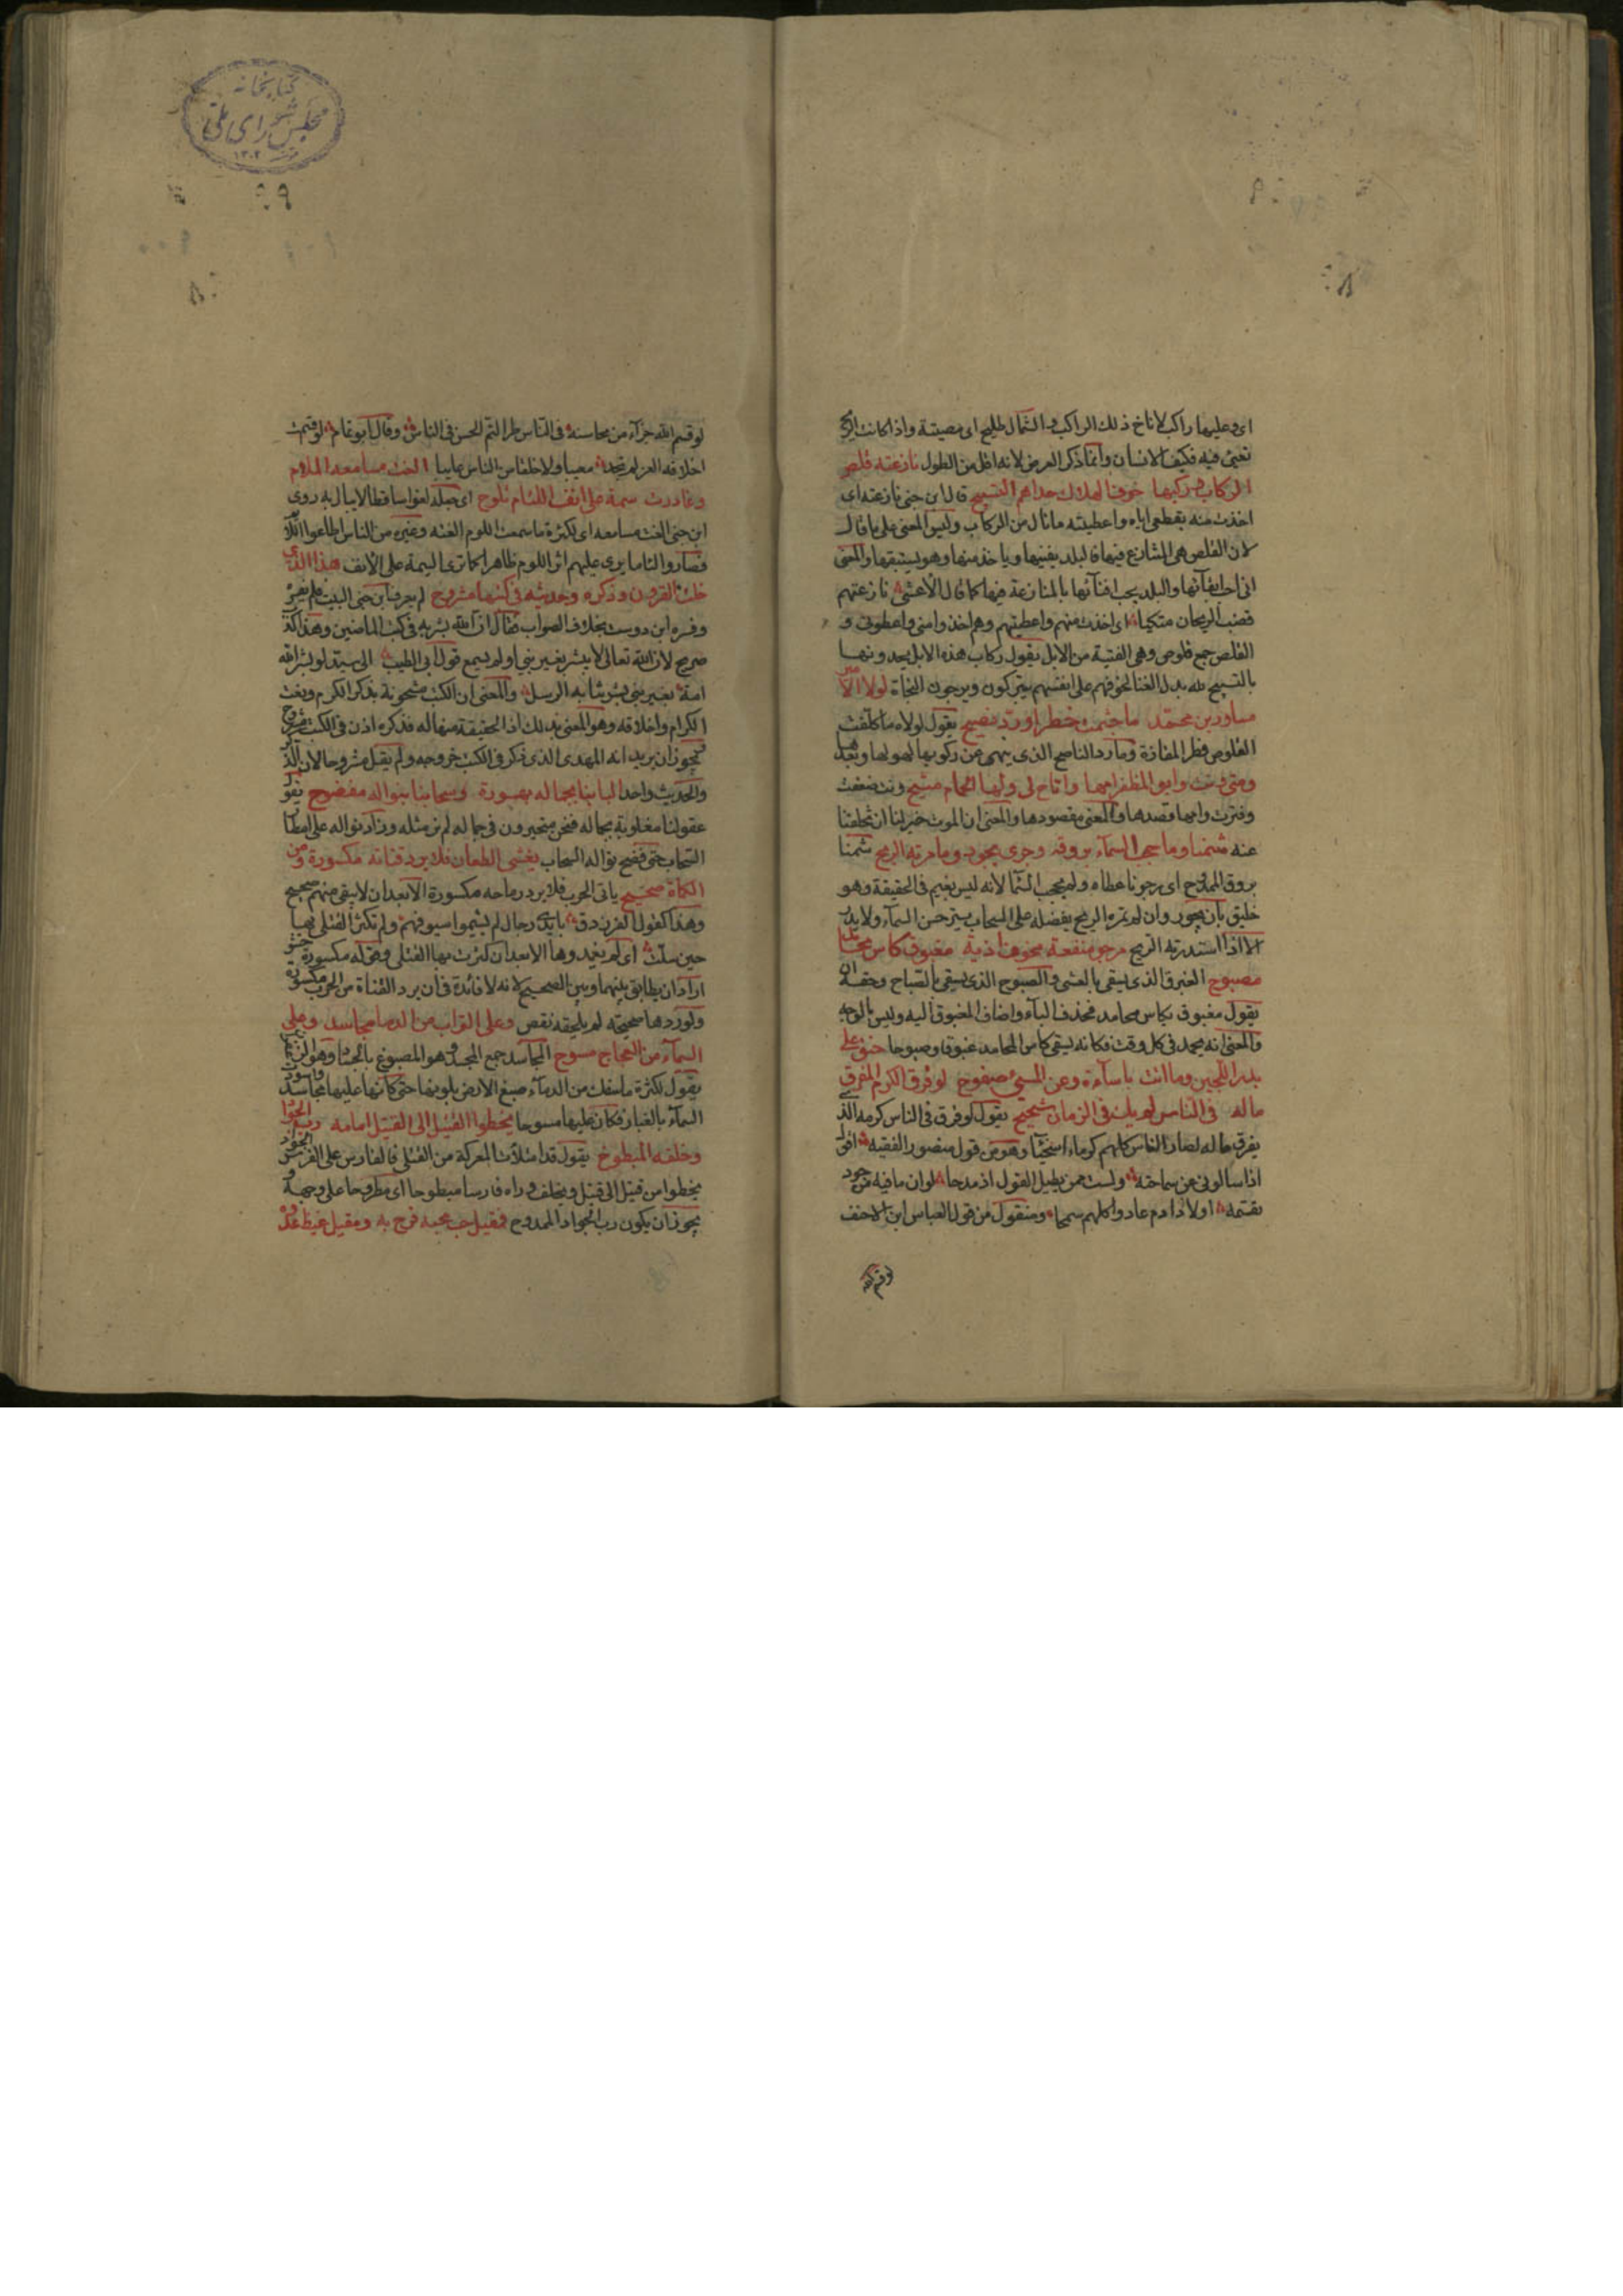 اى وعليها راكب لاناخ ذلك الراكب والشمال طليح اى معيبة واذا كانت الريح
تعيى فيه فكيف الانسان وانما ذكر العرض لانه اقل من الطول نازعته قلص
الركاب وركبها خوف الهلاك حداهم التسبيح قال ابن جنى نازعته اى
اخذت منه بقطعى اياه واعطيته ما نال من الركاب وليس المعنى على ما قال
لان القلص هى المتنازع فيها فالبلد يفنيها وياخذ منها وهو يستبقيها والمعنى
انى احب ابقائها والبلد يحب افنائها بالمنازعة فيها كما قال الاعشى نازعتهم
قضب الريحان متكيا اى اخذت منهم واعطيتهم وهم اخذوا منى واعطونى و
القلص جمع قلوص وهى الفتية من الابل يقول ركاب هذه الابل يحدونها
بالتسبيح لله بدل الغنا لخوفهم على انفسهم يتبركون ويرجون النجاة لولا الامير
مساور بن محمد ما جشمت خطرا ورد نصيح يقول لولاه ما كلفت
القلوص خطر المفازة وما رد الناصح الذى ينهى عن ركوبها لهولها وبعدها
ومتى ونت وابو المظفر امها واتاح لى ولها الحمام متيح ونت ضعفت
وفترت وامها قصدها والمعنى مقصودها والمعنى ان الموت خير لنا ان تخلفنا
عنه شمنا وما حجب السماء بروقه وحرى يجود وما مرته الريح شمنا
بروق الممدوح اى رجونا عطاه ولم يحجب السما لانه ليس بغيم فى الحقيقة وهو
خليق بان يجود وان لم تمره الريح يفضله على السحاب يستر حسن السماء ولا يدر
الا اذا استدرته الريح مرجو منفعة مخوف اذية مغبوق كاس محامد
مصبوح الغبوق الذى يسقى بالعشى والصبوح الذى يسقى بالصباح وحقه ان
يقول مغبوق بكاس محامد فحذف الباء واضاف المغبوق اليه وليس بالوجه
والمعنى انه يحمد فى كل وقت فكانه يسقى كاس المحامد غبوقا وصبوحا حنق على
بدر اللجين وما اتت باساءة وعن المسىء صفوح لو فرق الكرم المفرق
ماله فى الناس لم يك فى الزمان شحيح يقول لو فرق فى الناس كرمه الذى
يفرق ماله لصار الناس كلهم كرماء اسخيا وهو من قول منصور الفقيه اقول
اذا سالونى عن سماحته ولست ممن يطيل القول اذ مدحا لو ان ما فيه من جود
تقسمه اولاد ادم عادوا كلهم سمحا ومنقول من قول العباس ابن الاحنف
لو قسم الله
لو قسم الله جزأ من محاسنه فى الناس طرا لتم الحسن فى الناس وقال ابو تمام لو اقتسمت
اخلاقه الغر لم تجد معيبا ولا خلقا من الناس عايبا الغت مسامعه الملام
وغادرت سمة على انف اللئام تلوح اى جعلته لغوا ساقطا لا يبال به روى
ابن جنى الفت مسامعه اى لكثرة ما سمعت اللوم الفته وغيره من الناس اطاعوا اللائم
فصاروا لئاما يرى عليهم اثر اللوم ظاهرا كما ترى السمة على الانف هذا الذى
خلت القرون وذكره وحديثه فى كتبها مشروح لم يعرف ابن جنى البيت فلم يفسره
وفسره ابن دوست بخلاف الصواب فقال ان الله بشر به فى كتب الماضين وهذا كذب
صريح لان الله تعالى لا يبشر بغير نبى اولم يسمع قول ابى الطيب الى سيد لو بشر الله
امة بغير نبى بشرتنا به الرسل والمعنى ان الكتب مشحونة بذكر الكرم ونعت
الكرام واخلاقه وهو المعنى بذلك اذ الحقيقة منها له فذكره اذن فى الكتب مشروح
ويجوز ان يريد انه المهدى الذى ذكر فى الكتب خروجه ولم يقل مشروحان لان الذكر
والحديث واحد البابنا بجماله مبهورة وسحابنا بنواله مفضوح يقول
عقولنا مغلوبة بجماله فنحن متحيرون فى جماله لم نر مثله وزاد نواله على امطار
السحاب حتى فضح نواله السحاب يغشى الطعان فلا يرد قناته مكسورة ومن
الكماة صحيح ياتى الحرب فلا يرد رماحه مكسورة الا بعد ان لا يبقى منهم صحيح
وهذا كقول الفرزدق بايدى رجال لم يشيموا سيوفهم ولم تكثر القتلى بها
حين سلت اى لم يغمدوها الا بعد ان كثرت بها القتلى وقوله مكسورة حشو
اراد ان يطابق بينهما وبين الصحيح لانه لا فائدة فى ان يرد القناة من الحرب مكسورة
ولو ردها صحيحة لم يلحقه نقص وعلى التراب من الدما مجاسد وعلى
السماء من العجاج مسوح المجاسد جمع المجسد وهو المصبوغ بالجساد وهو الزعفران
يقول لكثرة ما سفك من الدماء صبغ الارض بلونها حتى كانها عليها مجاسد واسود
السماء بالغبار فكان عليها مسوحا يخطوا القتيل الى القتيل امامه رب الجواد
وخلفه المبطوح يقول قد امتلات المعركة من القتلى فالفارس على الفرس الجواد
يخطوا من قتيل الى قتيل ويخلف وراه فارسا مبطوحا اى مطروحا على وجهه و
يجوز ان يكون رب الجواد الممدوح فمقيل حب محبه فرح به ومقيل غيظ عدوه
كتابخانه
مجلس شوراى ملى
١٣٠٢